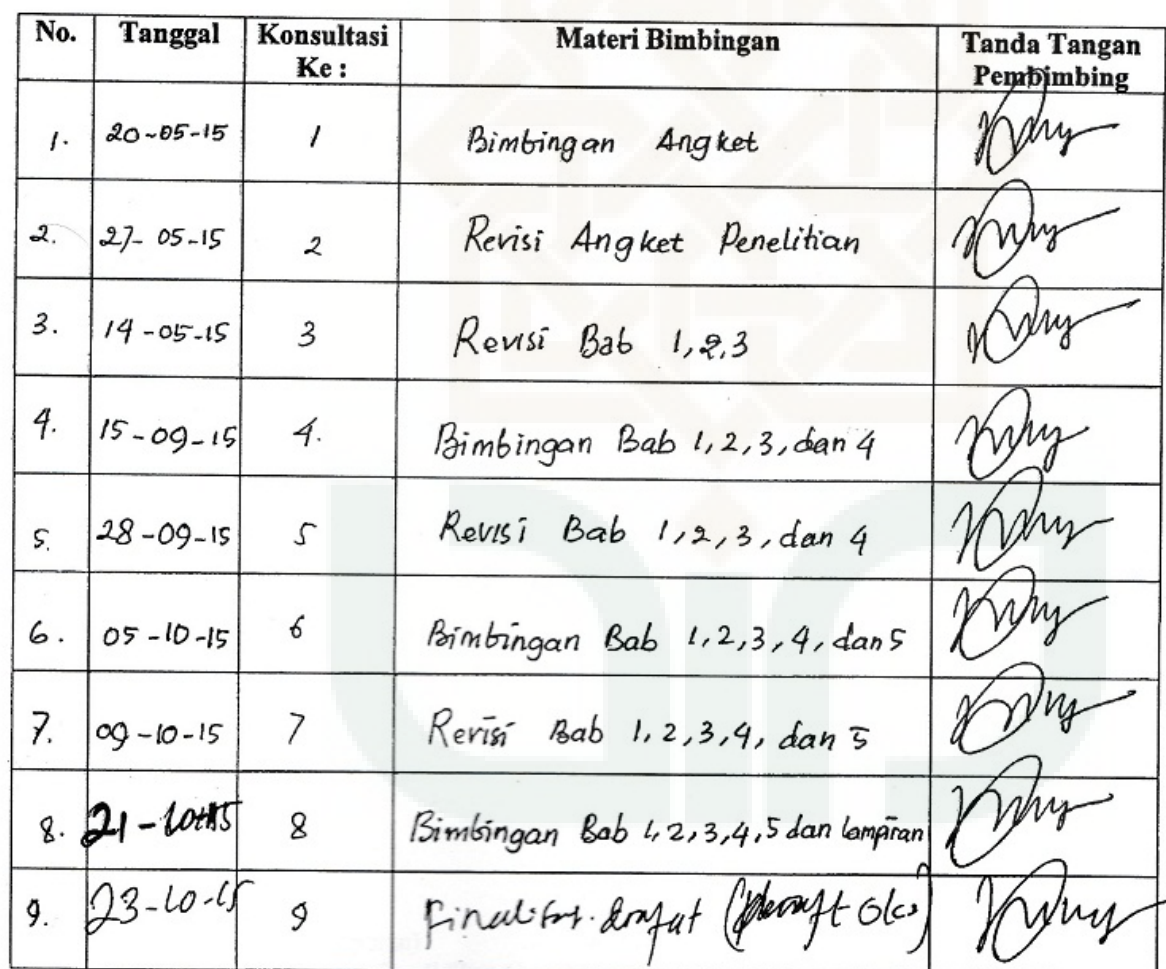 No. Tanggal Konsultasi Ke : Materi Bimbingan Tanda Tangan Pembimbing
1. 20-05-15 1 Bimbingan Angket
2. 27-05-15 2 Revisi Angket Penelitian
3. 14-05-15 3 Revisi Bab 1,2,3
4. 15-09-15 4. Bimbingan Bab 1,2,3, dan 4
5. 28-09-15 5 Revisi Bab 1,2,3, dan 4
6. 05-10-15 6 Bimbingan Bab 1,2,3,4, dan 5
7. 09-10-15 7 Revisi Bab 1,2,3,4, dan 5
8. 21-10-15 8 Bimbingan Bab 1,2,3,4,5 dan lampiran
9. 23-10-15 9